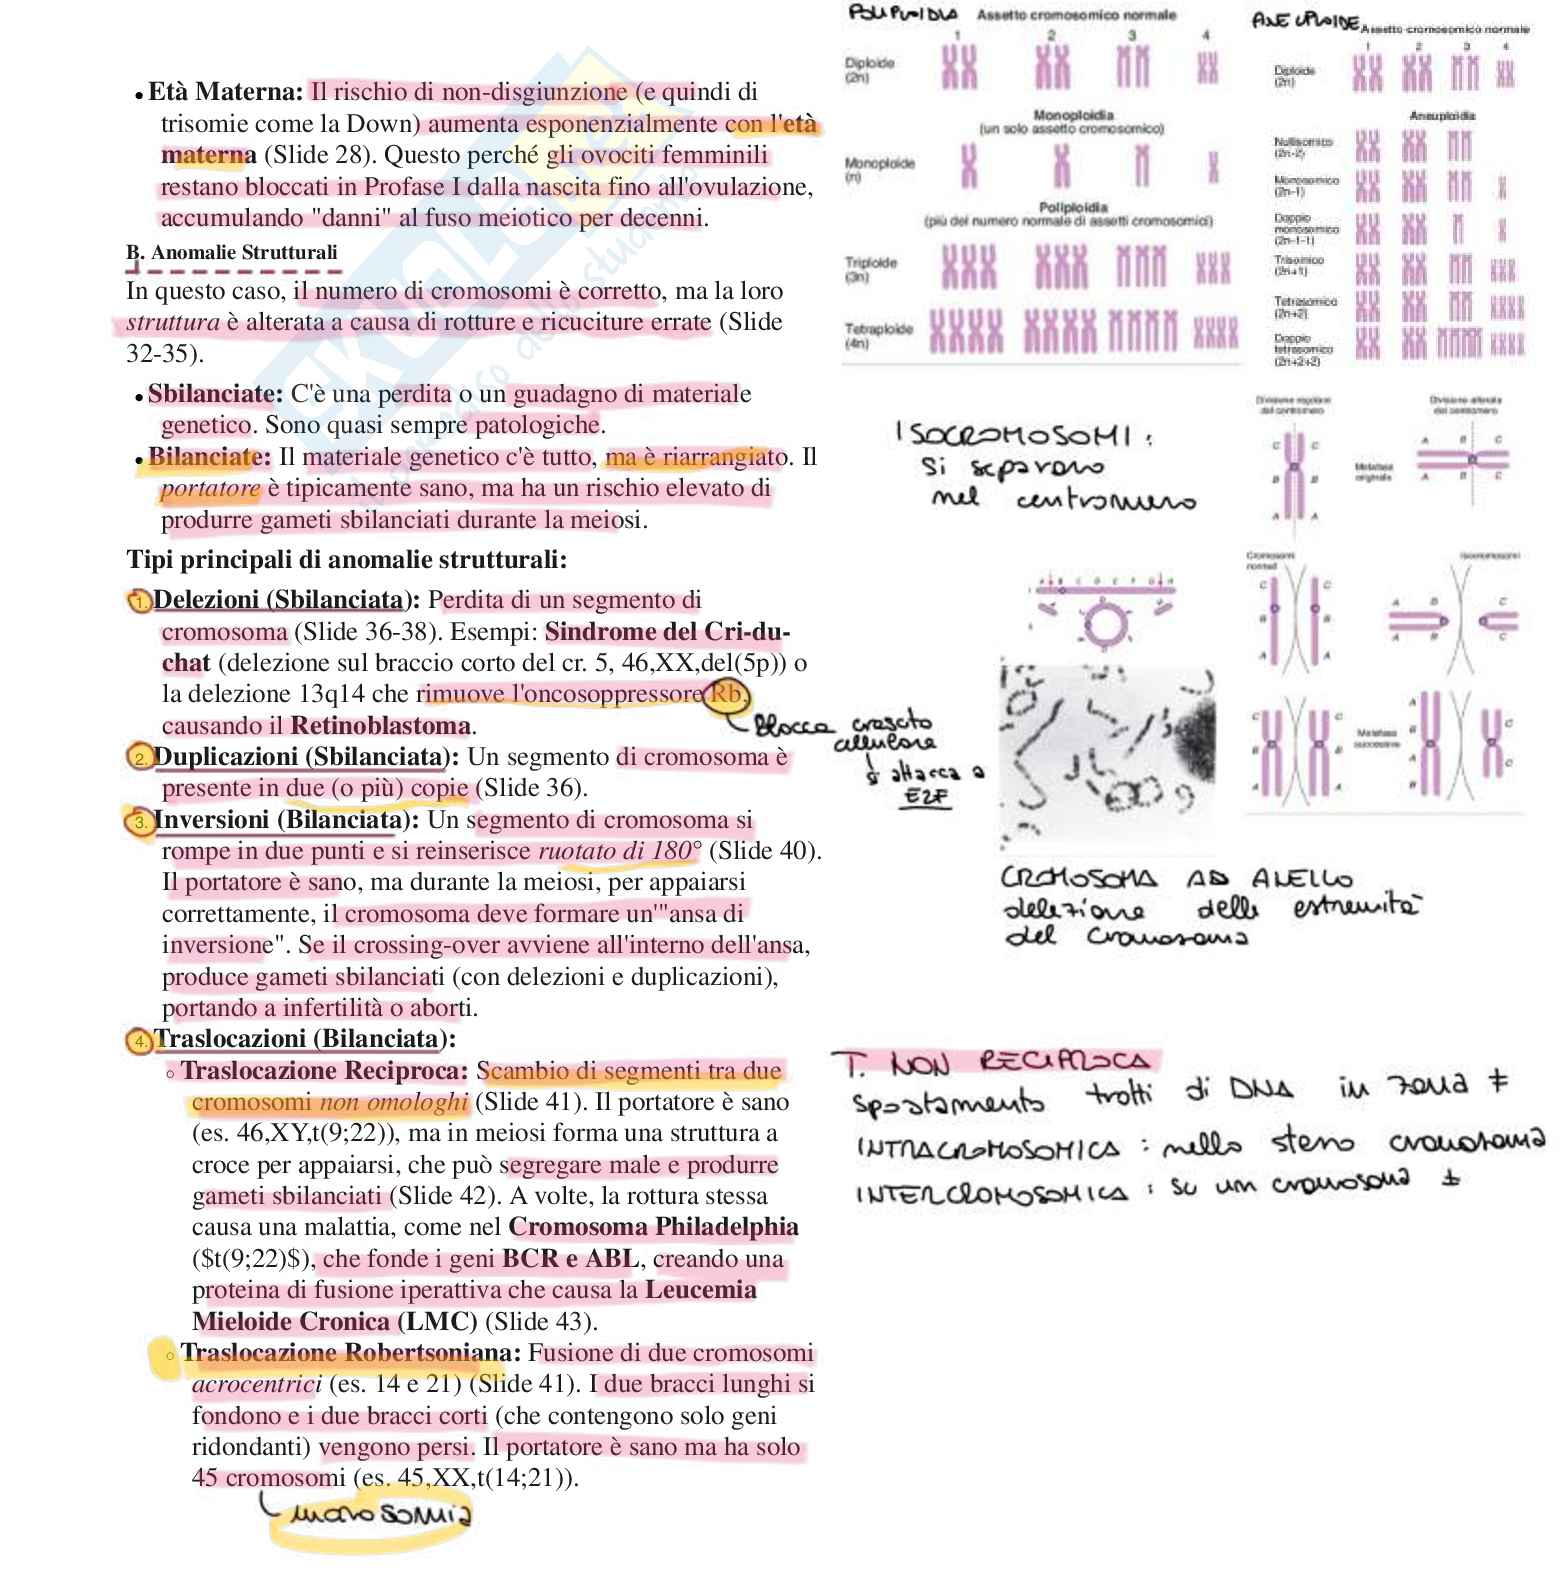 • Età Materna: Il rischio di non-disgiunzione (e quindi di
trisomie come la Down) aumenta esponenzialmente con l'età
materna (Slide 28). Questo perché gli ovociti femminili
restano bloccati in Profase I dalla nascita fino all'ovulazione,
accumulando "danni" al fuso meiotico per decenni.
B. Anomalie Strutturali
In questo caso, il numero di cromosomi è corretto, ma la loro
struttura è alterata a causa di rotture e ricuciture errate (Slide
32-35).
• Sbilanciate: C'è una perdita o un guadagno di materiale
genetico. Sono quasi sempre patologiche.
• Bilanciate: Il materiale genetico c'è tutto, ma è riarrangiato. Il
portatore è tipicamente sano, ma ha un rischio elevato di
produrre gameti sbilanciati durante la meiosi.
Tipi principali di anomalie strutturali:
1. Delezioni (Sbilanciata): Perdita di un segmento di
cromosoma (Slide 36-38). Esempi: Sindrome del Cri-du-
chat (delezione sul braccio corto del cr. 5, 46,XX,del(5p)) o
la delezione 13q14 che rimuove l'oncosoppressore Rb,
causando il Retinoblastoma.
2. Duplicazioni (Sbilanciata): Un segmento di cromosoma è
presente in due (o più) copie (Slide 36).
3. Inversioni (Bilanciata): Un segmento di cromosoma si
rompe in due punti e si reinserisce ruotato di 180° (Slide 40).
Il portatore è sano, ma durante la meiosi, per appaiarsi
correttamente, il cromosoma deve formare un'"ansa di
inversione". Se il crossing-over avviene all'interno dell'ansa,
produce gameti sbilanciati (con delezioni e duplicazioni),
portando a infertilità o aborti.
4. Traslocazioni (Bilanciata):
○ Traslocazione Reciproca: Scambio di segmenti tra due
cromosomi non omologhi (Slide 41). Il portatore è sano
(es. 46,XY,t(9;22)), ma in meiosi forma una struttura a
croce per appaiarsi, che può segregare male e produrre
gameti sbilanciati (Slide 42). A volte, la rottura stessa
causa una malattia, come nel Cromosoma Philadelphia
($t(9;22)$), che fonde i geni BCR e ABL, creando una
proteina di fusione iperattiva che causa la Leucemia
Mieloide Cronica (LMC) (Slide 43).
○ Traslocazione Robertsoniana: Fusione di due cromosomi
acrocentrici (es. 14 e 21) (Slide 41). I due bracci lunghi si
fondono e i due bracci corti (che contengono solo geni
ridondanti) vengono persi. Il portatore è sano ma ha solo
45 cromosomi (es. 45,XX,t(14;21)).
monosomia
POLIPLOIDIA Assetto cromosomico normale
1 2 3 4
Diploide
(2n)
Monoploidia
(un solo assetto cromosomico)
Monoploide
(n)
Poliploidia
(più del numero normale di assetti cromosomici)
Triploide
(3n)
Tetraploide
(4n)
ANEUPLOIDE Assetto cromosomico normale
1 2 3 4
Diploide
(2n)
Aneuploidia
Nullisomico
(2n-2)
Monosomico
(2n-1)
Doppio
monosomico
(2n-1-1)
Trisomico
(2n+1)
Tetrasomico
(2n+2)
Doppio
tetrasomico
(2n+2+2)
ISOCROMOSOMI:
si separano
nel centromero
Divisione regolare
del centromero
Divisione alterata
del centromero
Metafase
originale
Cromosomi
normali
Isocromosomi
Metafase
successiva
Blocca crescita
cellulare
si attacca a
E2F
CROMOSOMA AD ANELLO
delezione delle estremità
del cromosoma
T. NON RECIPROCA
spostamento tratti di DNA in zona ≠
INTRACROMOSOMICA : nello stesso cromosoma
INTERCROMOSOMICA : su un cromosoma ≠